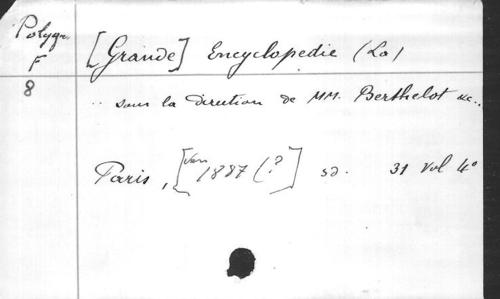 Polygr.
F
8
[Grande] Encyclopedie (La)
.. sous la direction de MM. Berthelot &c..
Paris, [Ven 1887 (?] sd. 31 Vol 4°